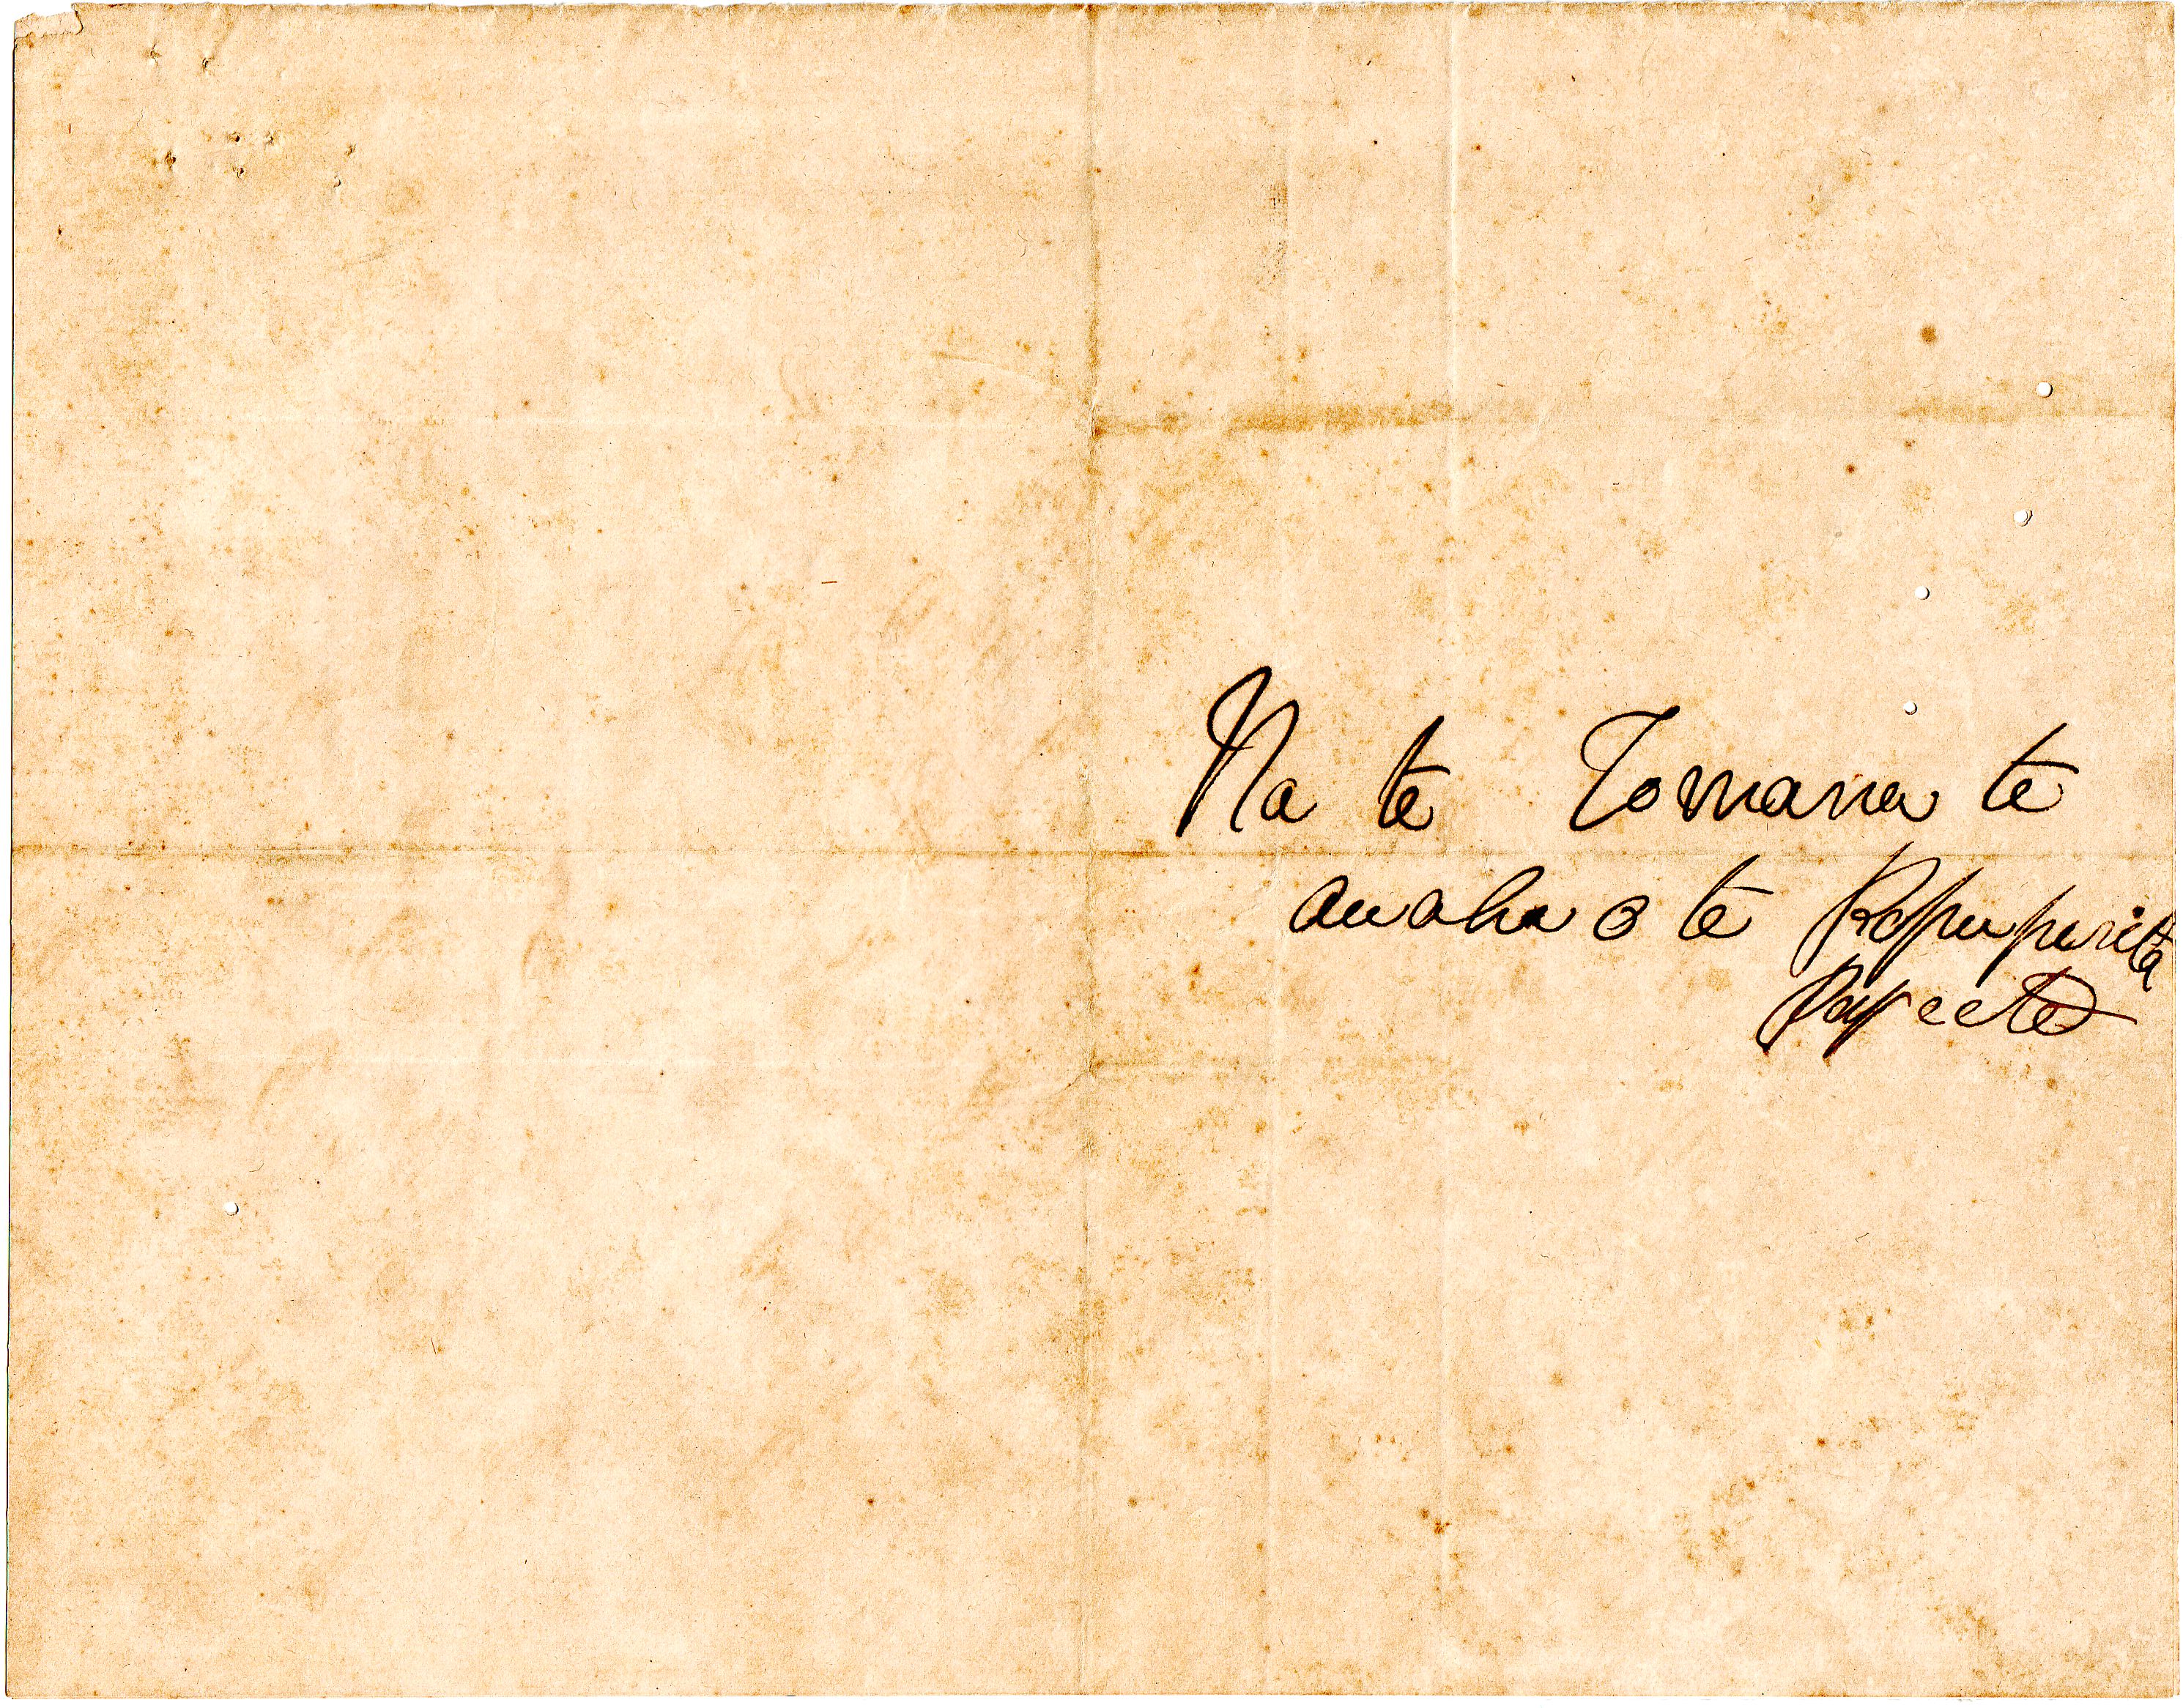 Na te Tomana te
auaha o te Repupirita
Papeete